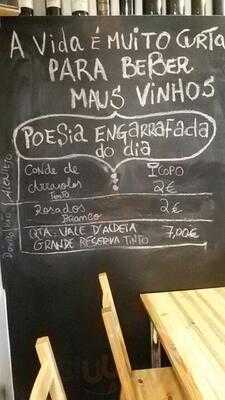 A Vida é Muito Curta
PARA BEBER
MAUS VINHOS
POESIA ENGARRAFADA
do dia
CONDE de
Arraiolos
Tinto
1 COPO
2€
Rosados
Branco
2€
QTA. VALE D'ALDEIA
GRANDE RESERVA TINTO
7,00€